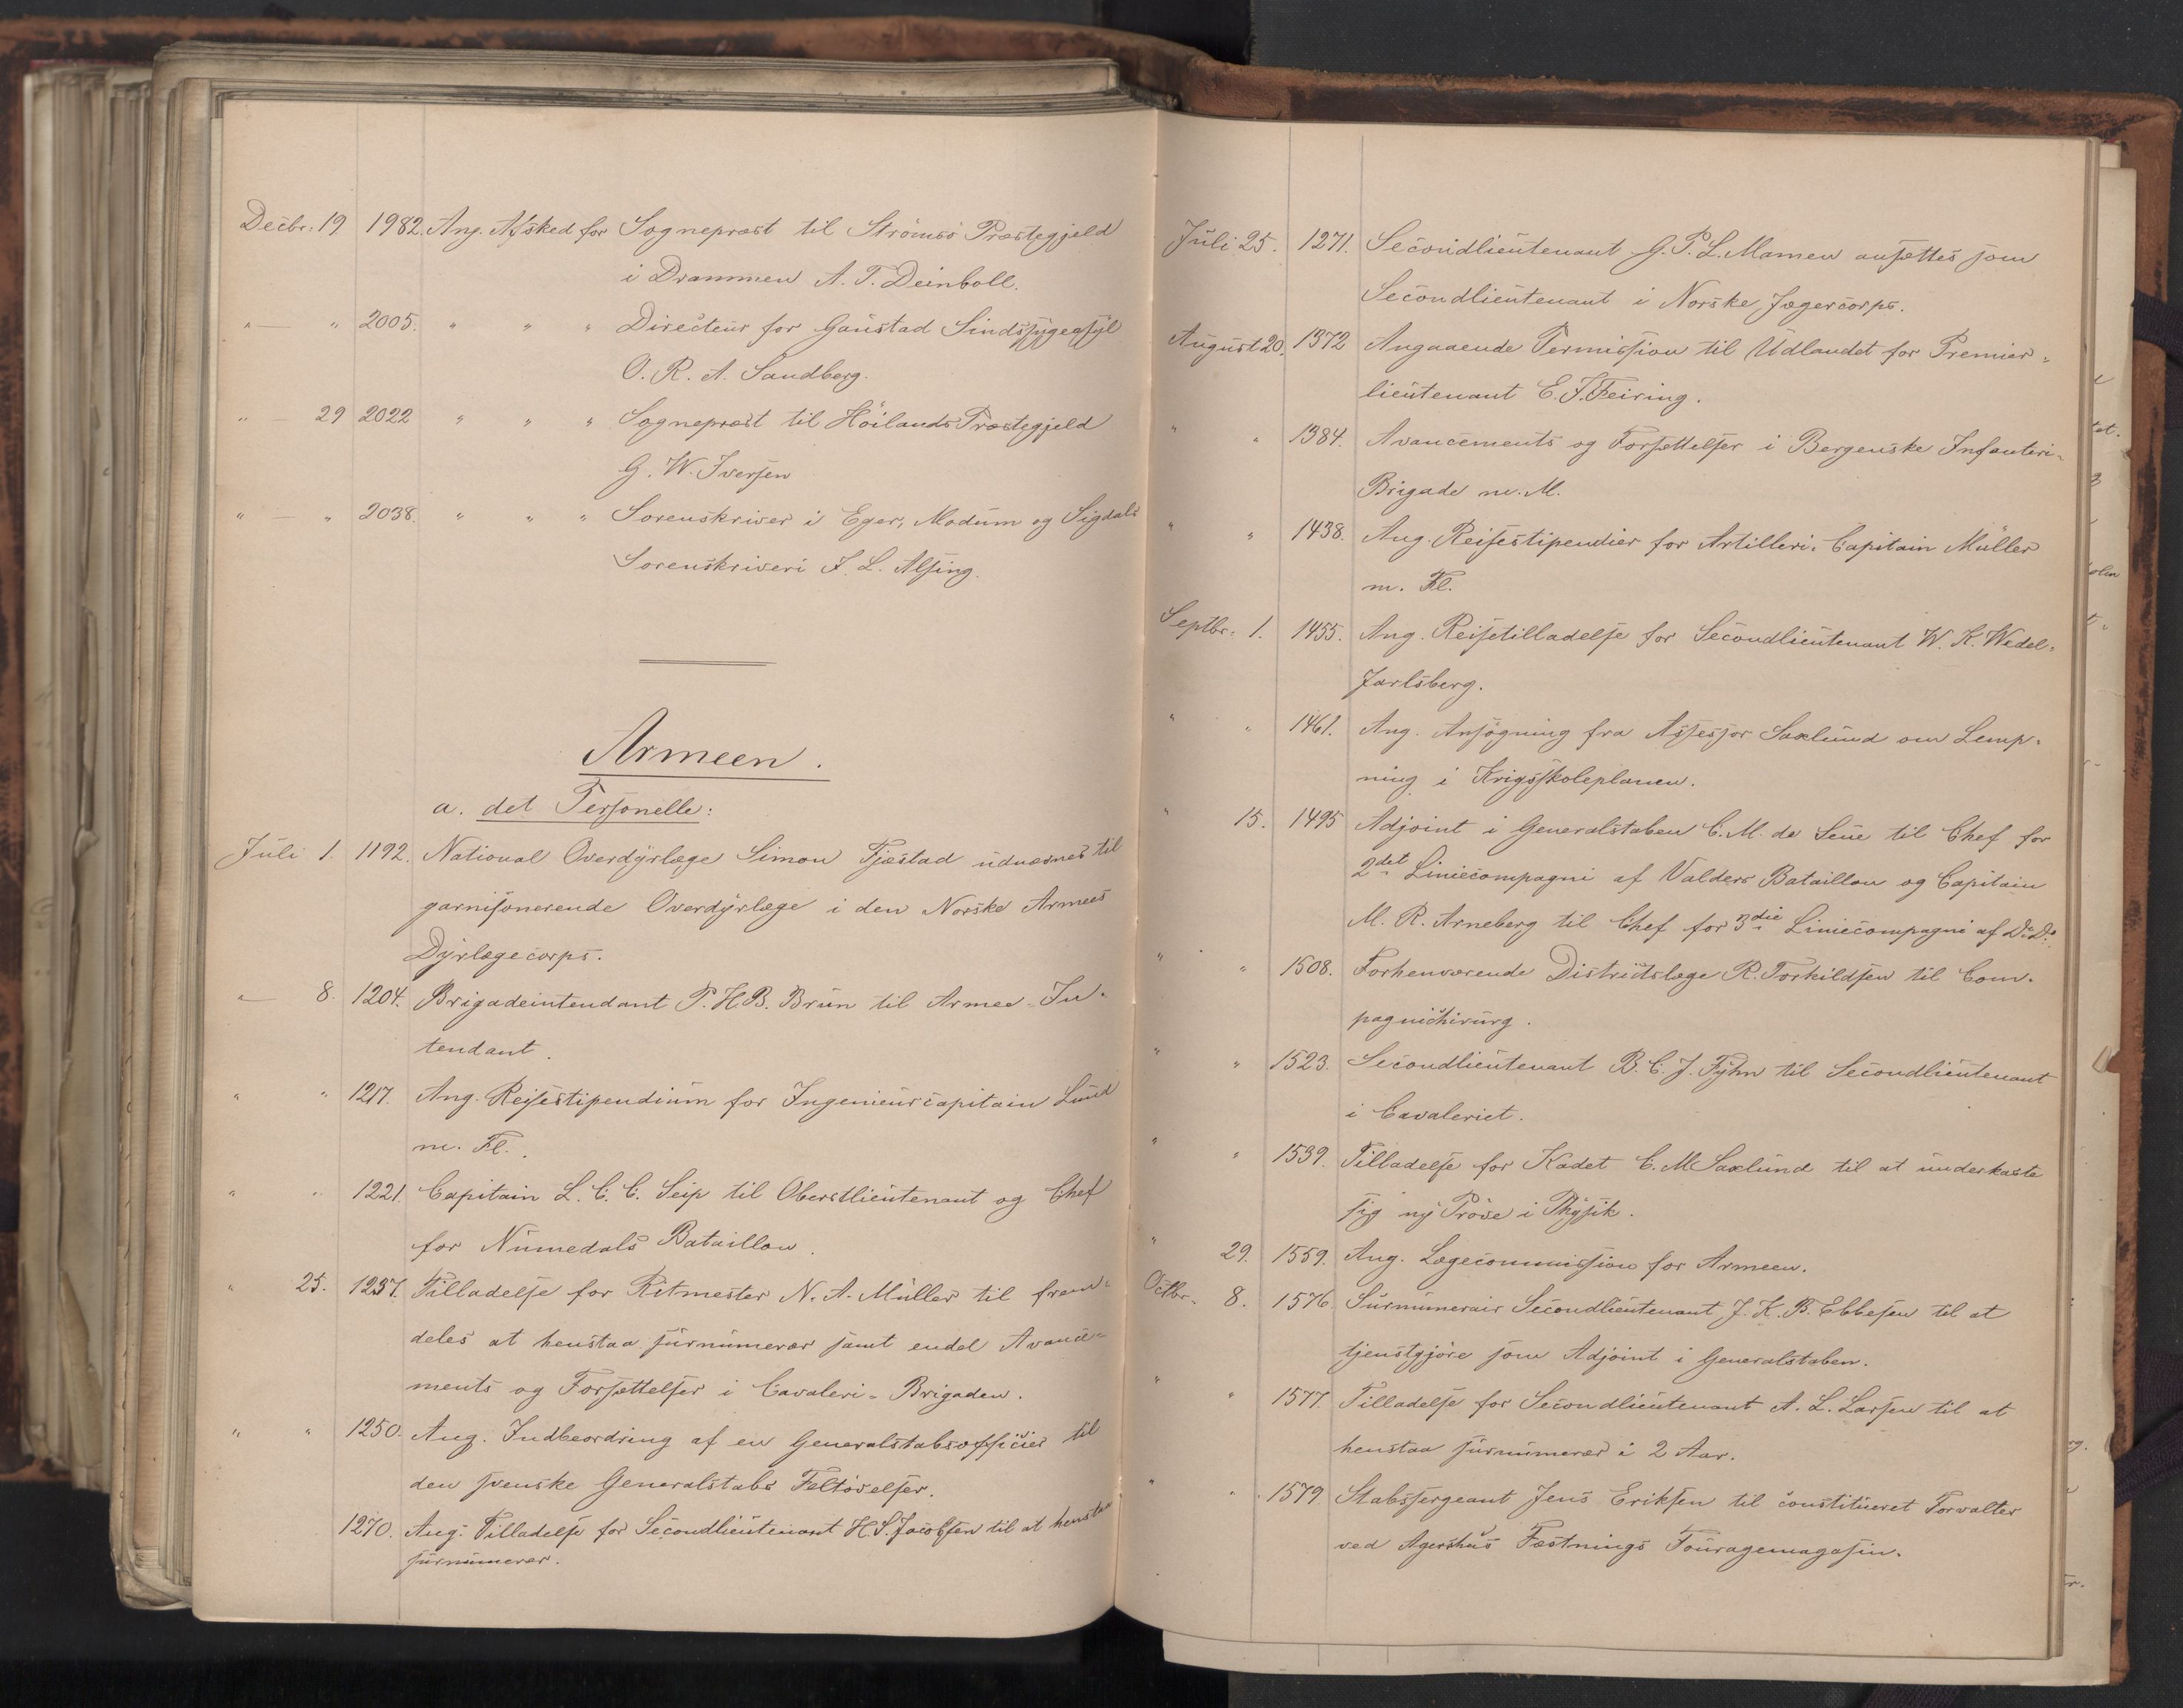 Decbr. 19 1982. Ang. Afsked for Sognepræst til Strömsö Præstegjeld
i Drammen A. T. Deinboll.
" — " 2005. " " " Directeur for Gaustad Sindssygeasyl
O. R. A. Sandberg.
" 29 2022 " " " Sognepræst til Höilands Præstegjeld
G. W. Iversen
" — " 2038. " " " Sorenskriver i Eger, Modum og Sigdals
Sorenskriveri J. L. Alsing.
Armeen.
a. det Personelle:
Juli 1. 1192. National Overdyrlæge Simon Fjæstad udnævnes til
garnisonerende Overdyrlæge i den Norske Armees
Dyrlægecorps.
" — 8. 1204. Brigadeintendant P. H. B. Brun til Armee-In-
tendant.
" " 1217. Ang. Reisestipendium for Ingenieurcapitain Lund
m. Fl.
" " 1221. Capitain L. C. C. Seip til Oberstlieutenant og Chef
for Numedals Bataillon.
" 25. 1237. Tilladelse for Ritmester N. A. Müller til frem-
deles at henstaa surnumerær samt endel Avance-
ments og Forsættelser i Cavaleri-Brigaden.
" " 1250. Ang. Indbeordring af en Generalstabsofficier til
den svenske Generalstabs Feltövelser.
1270. Ang. Tilladelse for Secondlieutenant H. S. Jacobsen til at henstaa
surnumerær.
Juli 25. 1271. Secondlieutenant G. P. L. Mamen ansættes som
Secondlieutenant i Norske Jægercorps.
August 20. 1372 Angaaende Permission til Udlandet for Premier-
lieutenant E. J. Feiring.
" " 1384. Avancements og Forsættelser i Bergenske Infanteri-
Brigade m. M.
" " 1438. Ang. Reisestipendier for Artilleri-Capitain Müller
m. Fl.
Septbr. 1. 1455. Ang. Reisetilladelse for Secondlieutenant W. K. Wedel-
Jarlsberg.
" " 1461. Ang. Ansögning fra Assessor Saxlund om Lemp-
ning i Krigsskoleplanen.
" 15. 1495 Adjoint i Generalstaben C. M. de Seue til Chef for
2det Liniecompagni af Valders Bataillon og Capitain
M. R. Arneberg til Chef for 3die Liniecompagni af Do Do
" " 1508. Forhenværende Districtslæge R. Torkildsen til Com-
pagnichirurg.
" " 1523. Secondlieutenant B. C. J. Fyhn til Secondlieutenant
i Cavaleriet.
" " 1539. Tilladelse for Kadet C. M. Saxlund til at underkaste
sig ny Pröve i Physik.
" 29. 1559. Ang. Lægecommission for Armeen.
Octbr. 8. 1576. Surnumerair Secondlieutenant J. K. B. Ebbesen til at
tjenstgjöre som Adjoint i Generalstaben.
" " 1577. Tilladelse for Secondlieutenant A. L. Larsen til at
henstaa surnumerær i 2 Aar.
" " 1579. Stabssergeant Jens Eriksen til constitueret Forvalter
ved Agershus Fæstnings Fouragemagasin.